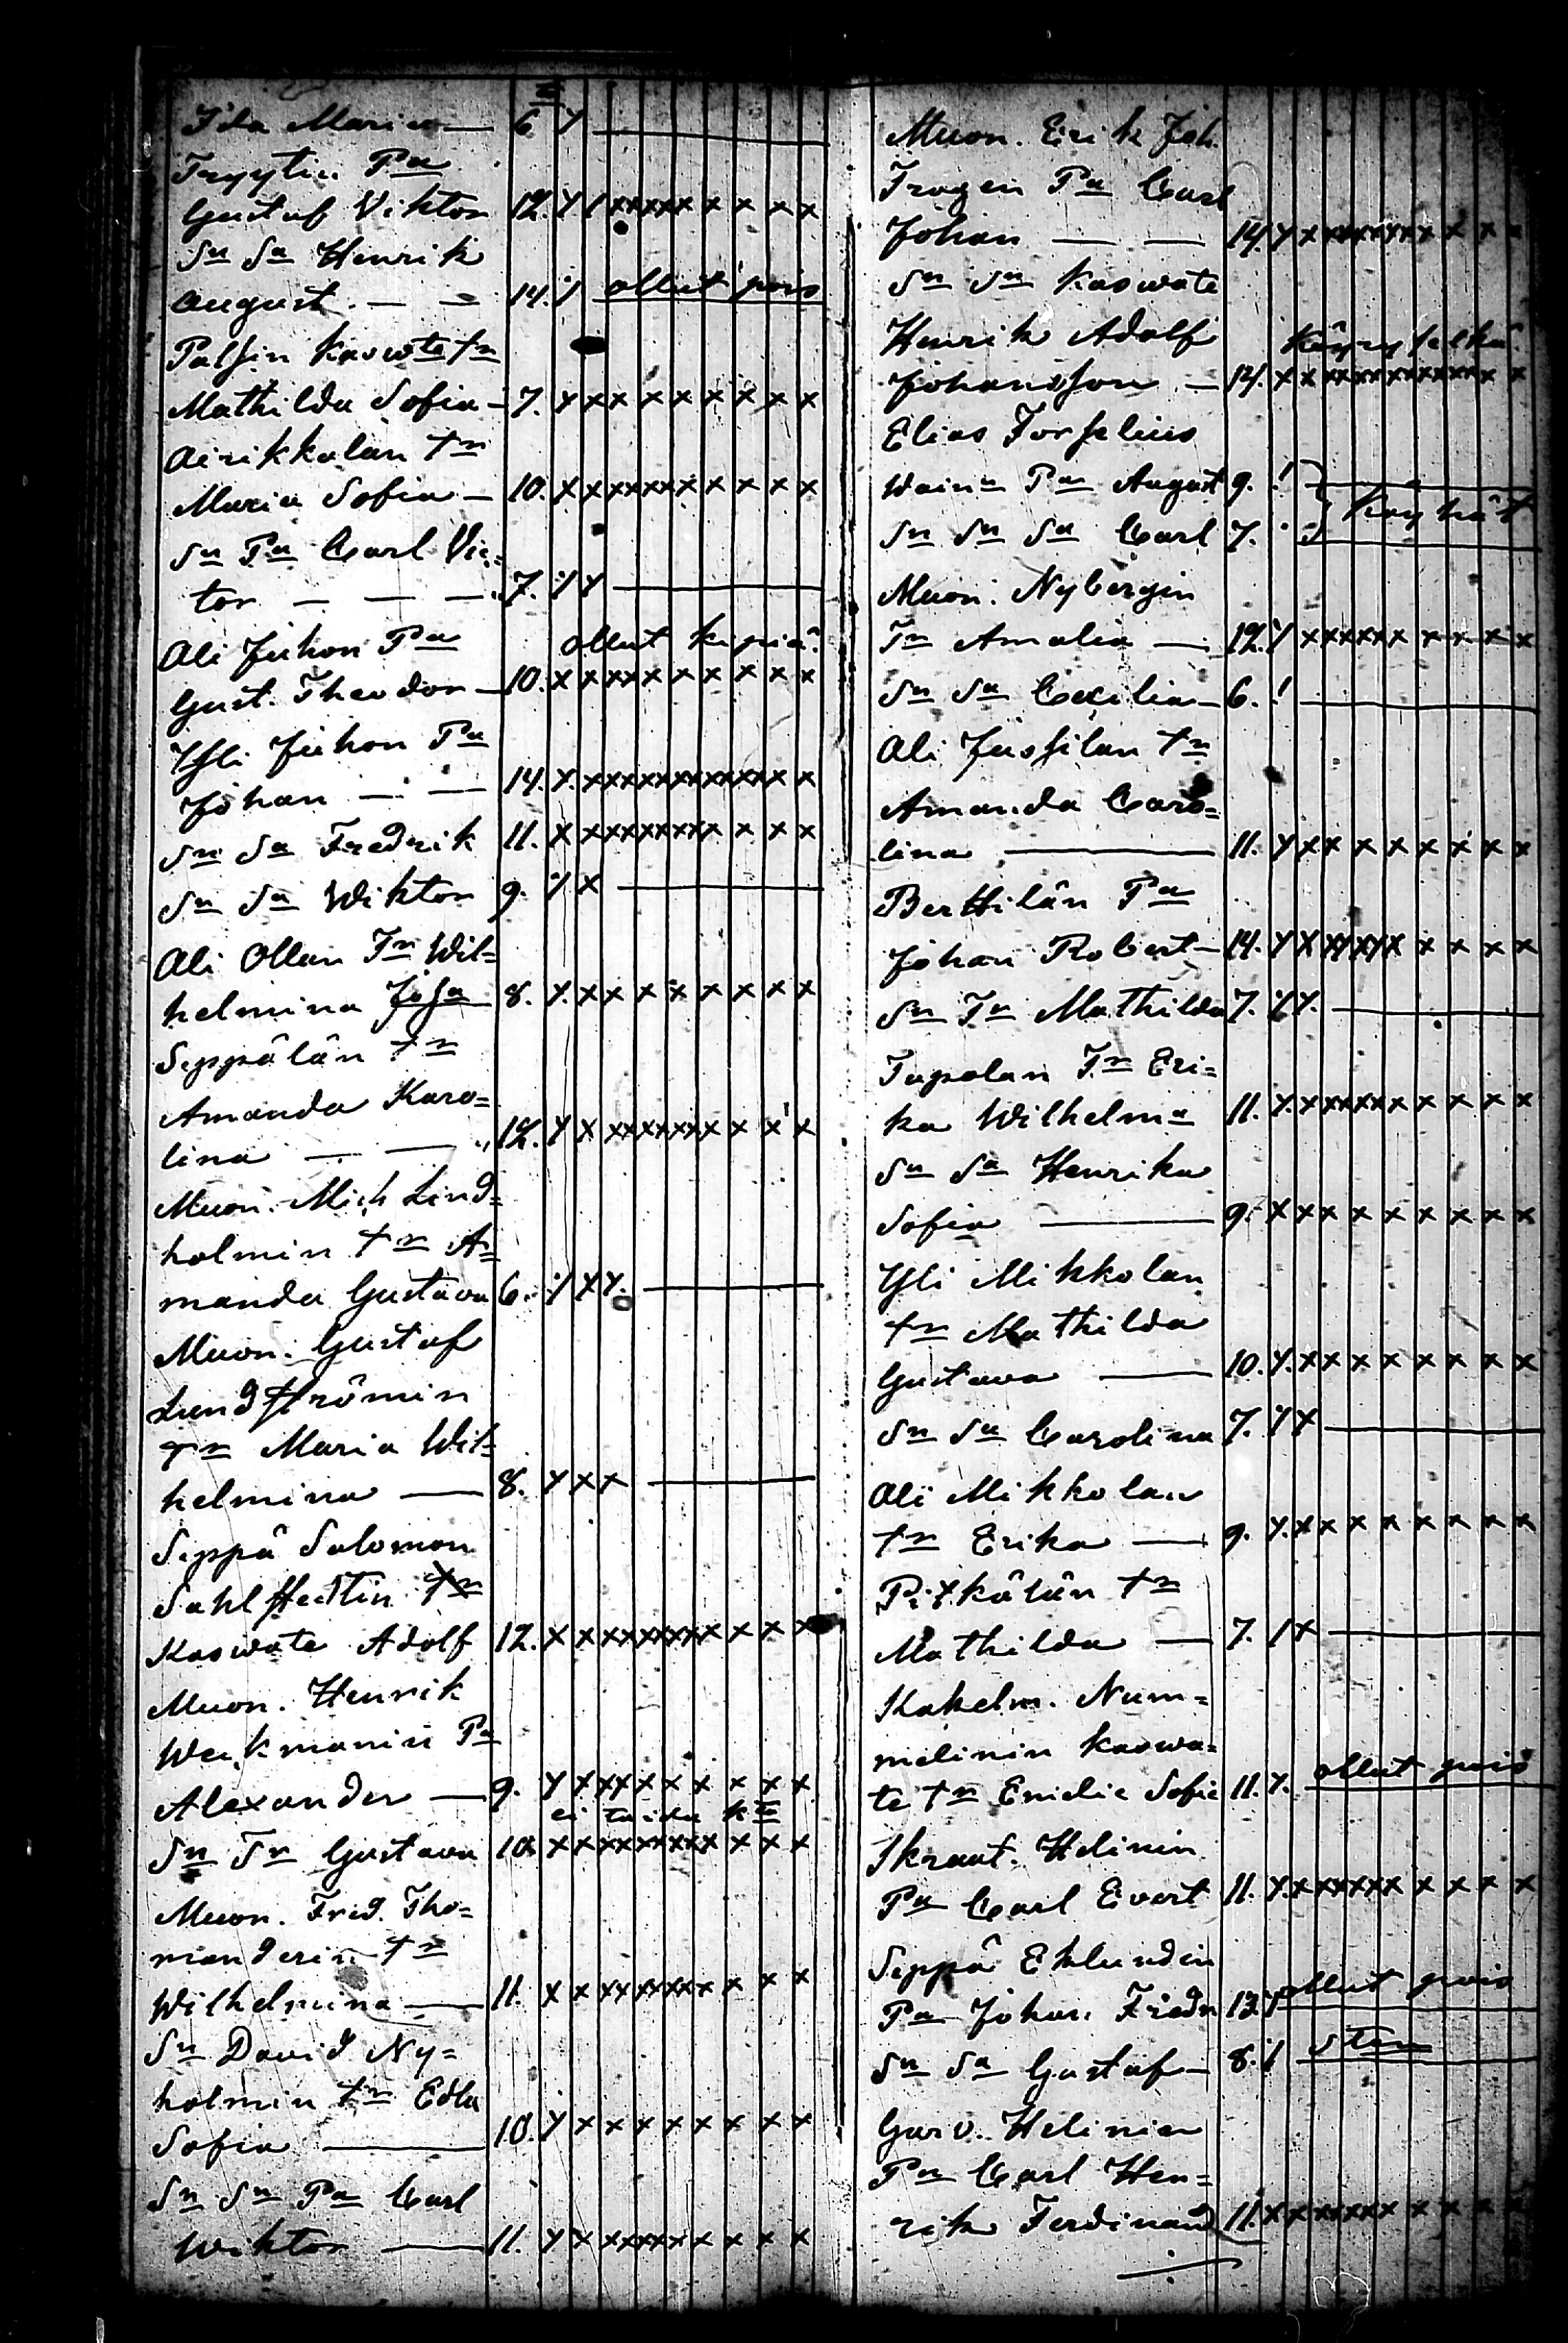 Ida Maria — 6. y
Tryytin Pa
Gustaf Viktor 12. y / x x x x x x x x x
Sn Sa Henrik
August — — 14. ·/ ollut pois
Palsin Kaswte tr
Mathilda Sofia — 7. y x x x x x x x x
Airikkalan tr
Maria Sofia — 10. x x x x x x x x x x x
Sn Pa Carl Vic=
tor — — — 7. ·/ y
Ali Juhon Pa ollut kipiä.
Gust. Theodor — 10. x x x x x x x x x x
Yli Juhon Pa
Johan — — 14. y. x x x x x x x x x x x x x
Sn Sa Fredrik 11. x x x x x x x x x x x x
Sn Sa Wiktor 9. ·/ x
Ali Ollan Tr Wil=
helmina Josa 8. y. x x x x x x x x
Seppälän tr
Amanda Karo=
lina — — 12. y x x x x x x x x x x x
Muon. Mich Lind=
holmin tr A=
manda Gustava 6. ·/ x y.
Muon. Gustaf
Lundströmin
Tr Maria Wil=
helmina — 8. y x x
Seppä Salomon
Sahlstedtin
Kaswate Adolf 12. x x x x x x x x x x x x
Muon. Henrik
Weikmanin Pa
Alexander — 9. y x x x y x x x x x x
ei taida
Sn Tr Gustava 10. x x x x x x x x x x x x
Muon. Fred. Tho=
manderin tr
Wilhelmina — 11. x x x x x x x x x x x
Sn David Ny=
holmin tr Edla
Sofia — 10. y x x x x x x x x
Sn Sn Pa Carl
Wiktor — 11. y x x x x x x x x x x
Muon. Erik Joh.
Trogen Pa Carl
Johan — — 14. y x x x x x x x x x x x
Sn Sn Kaswate
Henrik Adolf Käyry selkä.
Johansson — 14. x x x x x x x x x x x x x
Elias Forselius
Wainn Pa August 9. ! } Köyhät
Sn Sn Sa Carl 7.
Muon. Nybergin
Tr Amalia — 12. y x x x x x x x x x x
Sn Sa Cecilia — 6. !
Ali Jussilan tr
Amanda Caro=
lina — 11. y x x x x x x x x
Berttilän Pa
Johan Robert — 14. y x x y x y x x x x x
Sn Tr Mathilda 7. ·/ y.
Tupalan Tr Eri=
ka Wilhelma 11. y. x x x x x x x x x x x
Sn Sa Henrika
Sofia — 9. x x x x x x x x x
Yli Mikkolan
tr Mathilda
Gustava — 10. y. x x x x x x x x
Sn Sa Carolina 7. ·/ x
Ali Mikkolan
tr Erika — 9. y. x x x x x x x x
Pitkälän tr
Mathilda — 7. / x
Kakelm. Num=
melinin kaswa=
te tr Emilie Sofie 11. y. ollut pois
Skraat. Helinin
Pa Carl Evert 11. y. x x x x x x x x x x
Seppä Eklundin
Pa Johan Fredr 12. y ollut pois
Sn Sa Gustaf — 8. ·/
Garv. Helinin
Pa Carl Hen=
rik Ferdinand 11. x x x x x x x x x x